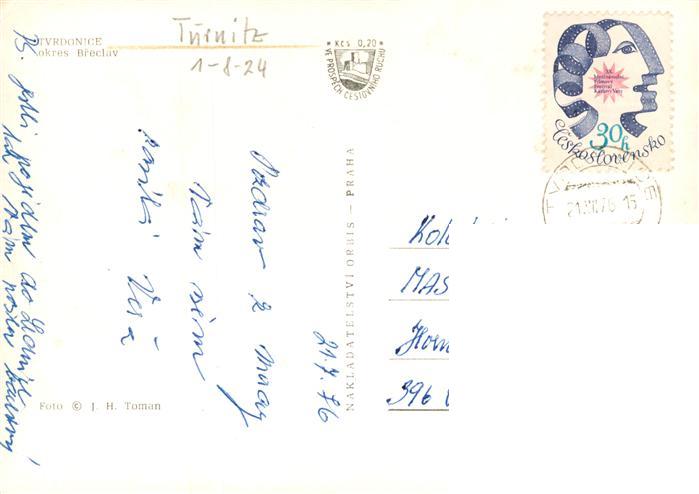 TVRDONICE
okres Břeclav
Türnitz
1-8-24
* Kčs 0,20 *
VE PROSPĚCH CESTOVNÍHO RUCHU
XX.
Mezinárodní
Filmový
Festival
Karlovy Vary
30h
Československo
21.VII.76-15
Pozdrav z Moravy
Vám všem
posílá Věra
21.7.76
jestli pojedem do
tak Vám pošlu
NAKLADATELSTVÍ ORBIS — PRAHA
Kol
MAS
Horn
396
Foto © J. H. Toman